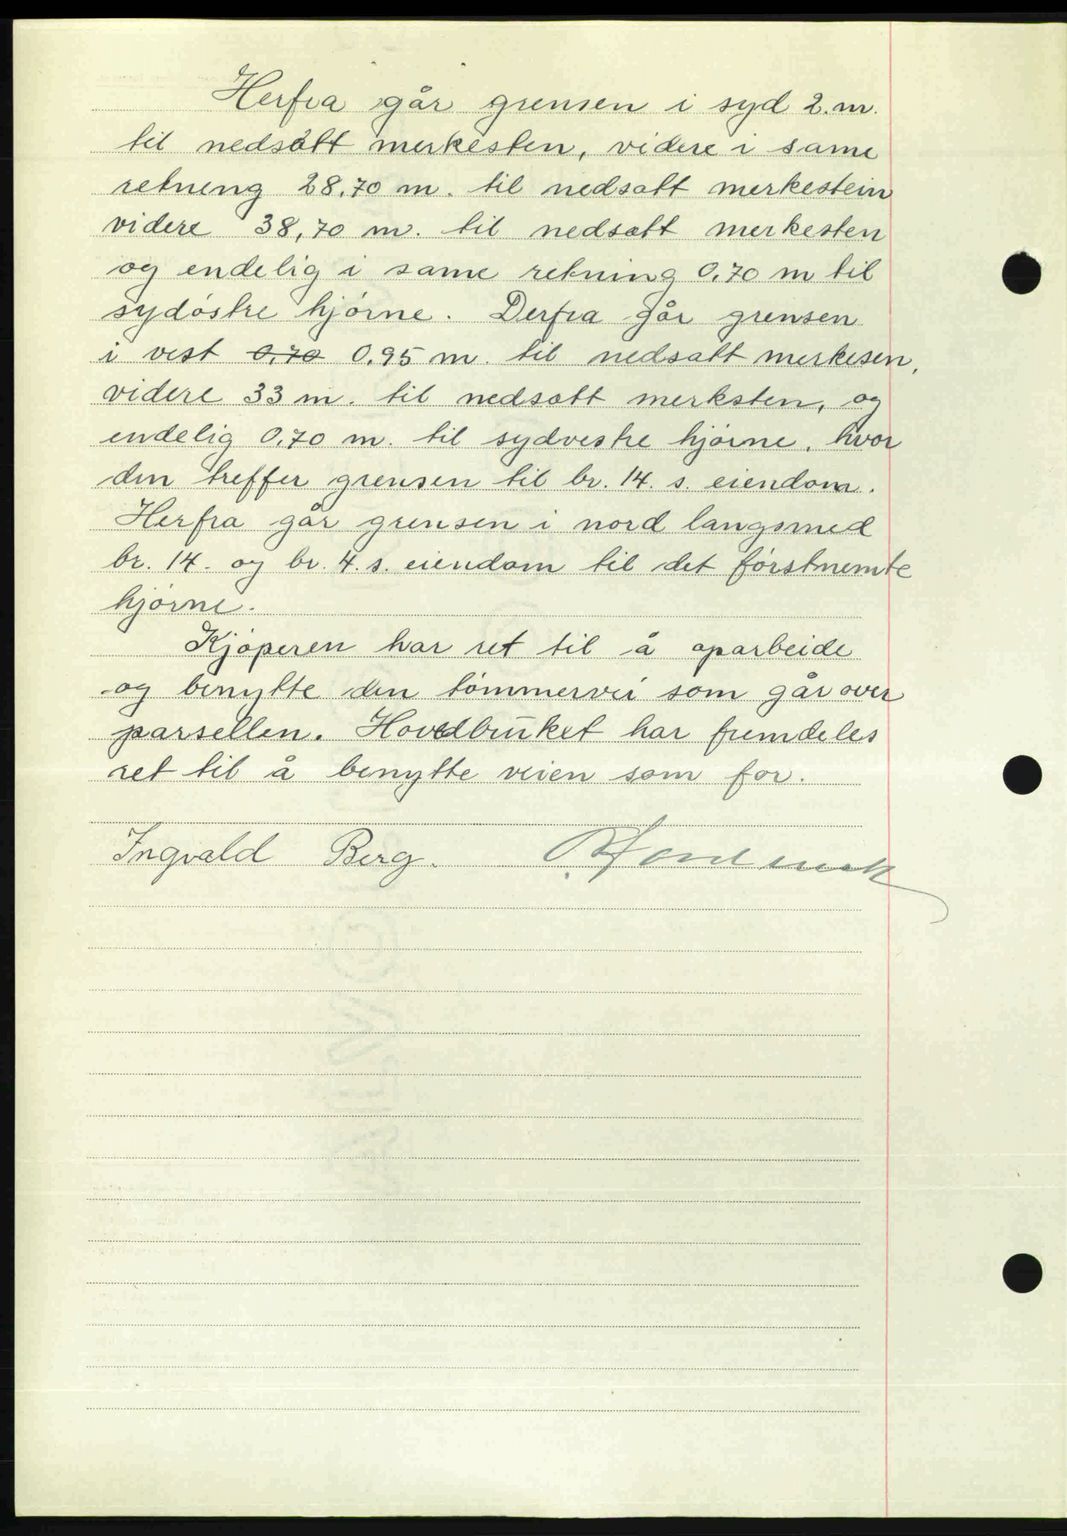 Herfra går grensen i syd 2.m.
til nedsatt merkesten, videre i same
retning 28,70 m. til nedsatt merkestein
videre 38,70 m. til nedsatt merkesten
og endelig i same retning 0,70 m til
sydöstre hjörne. Derfra går grensen
i vest 0,70 0,95 m. til nedsatt merkesen,
videre 33 m. til nedsatt merksten, og
endelig 0,70 m. til sydvestre hjörne, hvor
den treffer grensen til br. 14. s. eiendom.
Herfra går grensen i nord langsmed
br. 14. og br. 4. s. eiendom til det förstnemte
hjörne.
Kjöperen har ret til å oparbeide
og benytte den tömmervei som går over
parsellen. Hovedbruket har fremdeles
ret til å benytte veien som for.
Ingvald Berg.